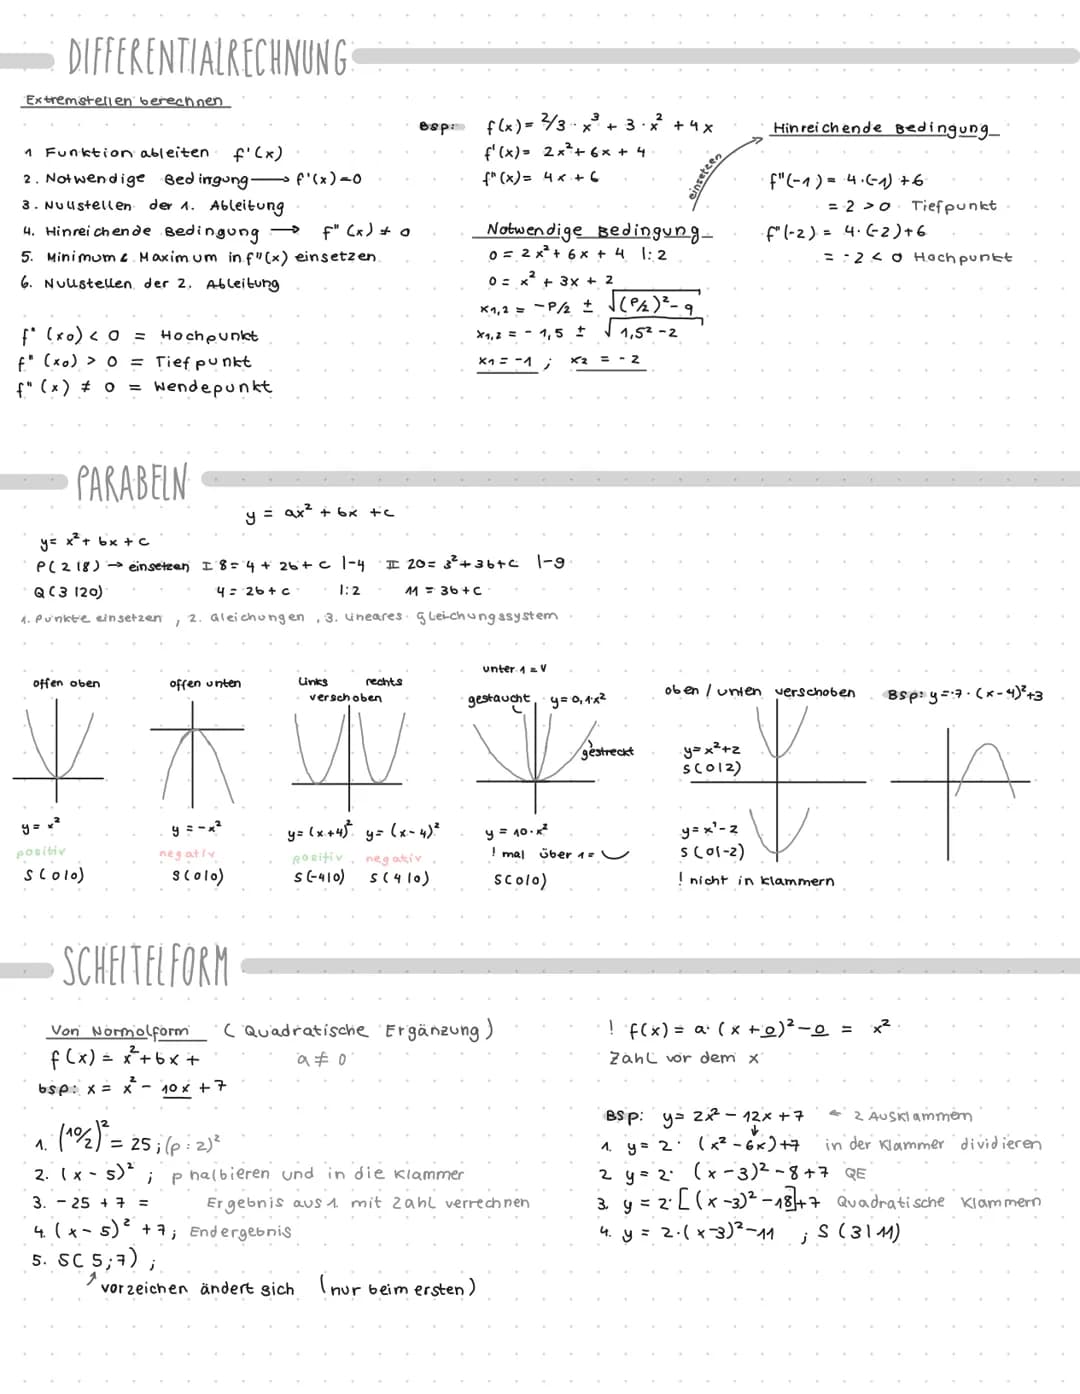 DIFFERENTIALRECHNUNG
Extremstellen berechnen
1 Funktion ableiten f'(x)
2. Notwendige Bedingung → f'(x)=0
3. Nullstellen der 1. Ableitung
4. Hinreichende Bedingung → f"(x) ≠ 0
5. Minimum & Maximum in f"(x) einsetzen
6. Nullstellen der 2. Ableitung
f"(x0) < 0 = Hochpunkt
f"(x0) > 0 = Tiefpunkt
f"(x) ≠ 0 = Wendepunkt
Bsp: f(x) = 2/3 · x³ + 3 · x² + 4x
f'(x) = 2x² + 6x + 4
f"(x) = 4x + 6
Notwendige Bedingung
0 = 2x² + 6x + 4 |:2
0 = x² + 3x + 2
x1,2 = -P/2 ± √(P/2)²-q
x1,2 = -1,5 ± √1,5²-2
x1 = -1 ; x2 = -2
einsetzen
Hinreichende Bedingung
f"(-1) = 4·(-1) +6
= 2 > 0 Tiefpunkt
f"(-2) = 4·(-2)+6
= -2 < 0 Hochpunkt
PARABELN
y = ax² + bx + c
y = x² + bx + c
P(2|8) → einsetzen I 8 = 4 + 2b + c |-4 II 20 = 3² + 3b + c |-9
Q(3|20) 4 = 2b + c |:2 11 = 3b + c
1. Punkte einsetzen , 2. Gleichungen , 3. lineares Gleichungssystem
offen oben
y = x²
positiv
S(0|0)
offen unten
y = -x²
negativ
S(0|0)
Links rechts
verschoben
y = (x+4)² y = (x-4)²
positiv negativ
S(-4|0) S(4|0)
unter 1 = V
gestaucht y = 0,1·x²
gestreckt
y = 10·x²
! mal über 1 =
S(0|0)
oben / unten verschoben
y = x²+2
S(0|2)
y = x²-2
S(0|-2)
! nicht in Klammern
Bsp: y = -7 · (x-4)²+3
SCHEITELFORM
Von Normalform (Quadratische Ergänzung)
f(x) = x² + bx + a ≠ 0
bsp: x = x² - 10x + 7
1. (10/2)² = 25 ; (p:2)²
2. (x - 5)² ; p halbieren und in die Klammer
3. -25 + 7 = Ergebnis aus 1 mit Zahl verrechnen
4. (x - 5)² + 7; Endergebnis
5. S(5;7) ;
vorzeichen ändert sich (nur beim ersten)
! f(x) = a· (x + o)² - o = x²
Zahl vor dem x
BSp: y = 2x² - 12x + 7 ← 2 Ausklammern
1. y = 2· (x² - 6x) +7 in der Klammer dividieren
2 y = 2· (x - 3)² - 8 + 7 QE
3. y = 2·[(x-3)² -18]+7 Quadratische Klammern
4. y = 2·(x-3)² -11 ; S(3|11)